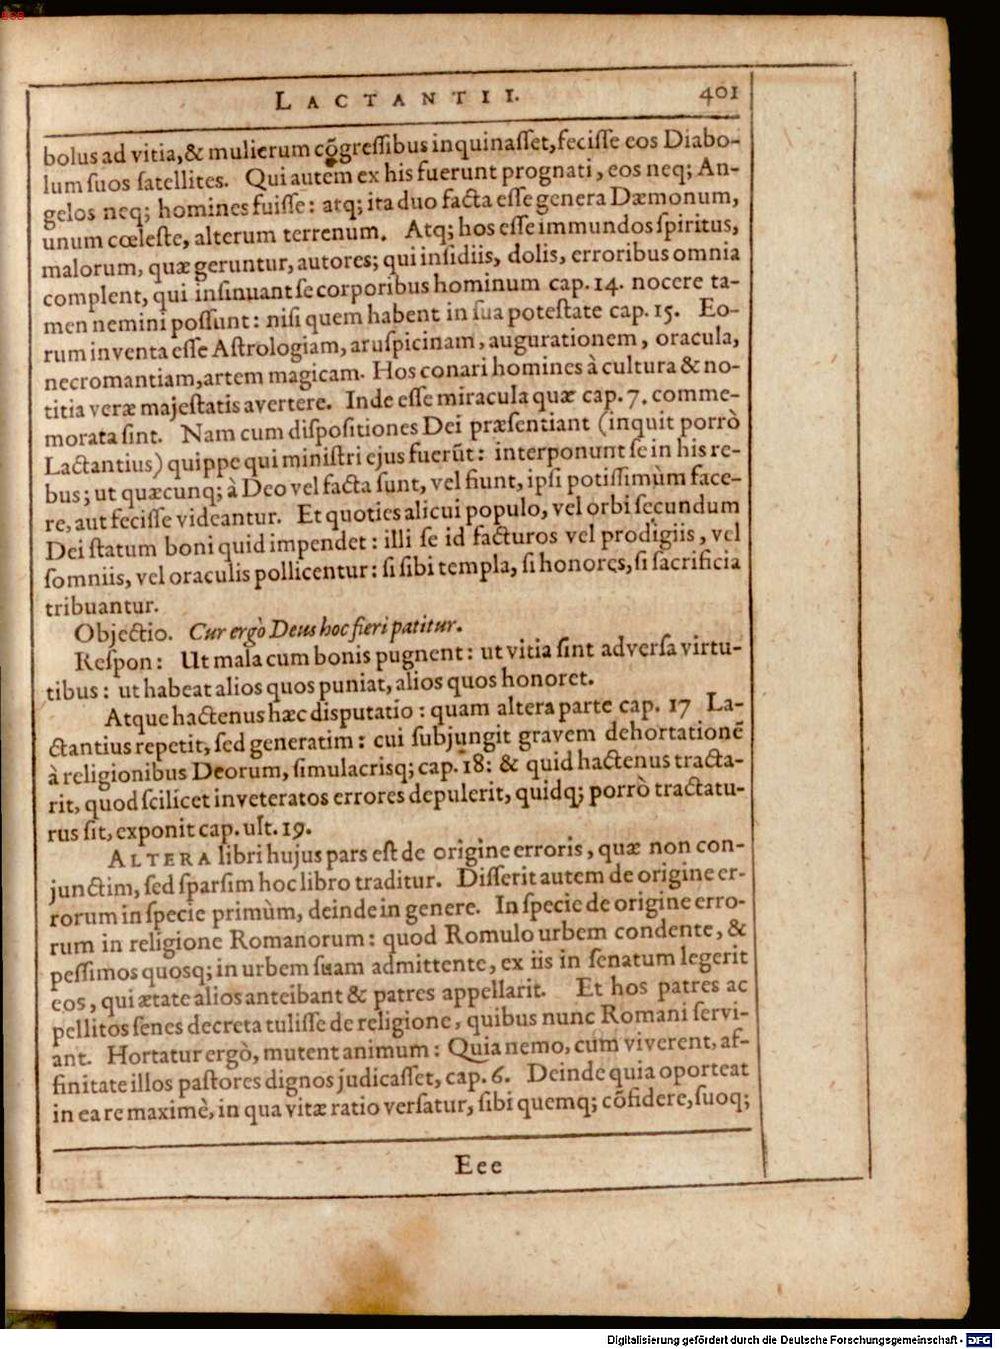 BSB
LACTANTII. 401
bolus ad vitia, & mulierum cõgreſſibus inquinaſſet, feciſſe eos Diabo-
lum ſuos ſatellites. Qui autem ex his fuerunt prognati, eos neq; An-
gelos neq; homines fuiſſe: atq; ita duo facta eſſe genera Dæmonum,
unum cœleſte, alterum terrenum. Atq; hos eſſe immundos ſpiritus,
malorum, quæ geruntur, autores; qui inſidiis, dolis, erroribus omnia
complent, qui inſinuant ſe corporibus hominum cap. 14. nocere ta-
men nemini poſſunt: niſi quem habent in ſua poteſtate cap. 15. Eo-
rum inventa eſſe Aſtrologiam, aruſpicinam, augurationem, oracula,
necromantiam, artem magicam. Hos conari homines à cultura & no-
titia veræ majeſtatis avertere. Inde eſſe miracula quæ cap. 7. comme-
morata ſint. Nam cum diſpoſitiones Dei præſentiant (inquit porrò
Lactantius) quippe qui miniſtri ejus fuerũt: interponunt ſe in his re-
bus; ut quæcunq; à Deo vel facta ſunt, vel fiunt, ipſi potiſſimùm face-
re, aut feciſſe videantur. Et quoties alicui populo, vel orbi ſecundum
Dei ſtatum boni quid impendet: illi ſe id facturos vel prodigiis, vel
ſomniis, vel oraculis pollicentur: ſi ſibi templa, ſi honores, ſi ſacrificia
tribuantur.
Objectio. Cur ergò Deus hoc fieri patitur.
Reſpon: Ut mala cum bonis pugnent: ut vitia ſint adverſa virtu-
tibus: ut habeat alios quos puniat, alios quos honoret.
Atque hactenus hæc diſputatio: quam altera parte cap. 17 La-
ctantius repetit, ſed generatim: cui ſubjungit gravem dehortationẽ
à religionibus Deorum, ſimulacriſq; cap. 18: & quid hactenus tracta-
rit, quod ſcilicet inveteratos errores depulerit, quidq; porrò tractatu-
rus ſit, exponit cap. ult. 19.
ALTERA libri hujus pars eſt de origine erroris, quæ non con-
junctim, ſed ſparſim hoc libro traditur. Diſſerit autem de origine er-
rorum in ſpecie primùm, deinde in genere. In ſpecie de origine erro-
rum in religione Romanorum: quod Romulo urbem condente, &
peſſimos quosq; in urbem ſuam admittente, ex iis in ſenatum legerit
eos, qui ætate alios anteibant & patres appellarit. Et hos patres ac
pellitos ſenes decreta tuliſſe de religione, quibus nunc Romani ſervi-
ant. Hortatur ergò, mutent animum: Quia nemo, cùm viverent, af-
finitate illos paſtores dignos judicaſſet, cap. 6. Deinde quia oporteat
in ea re maximè, in qua vitæ ratio verſatur, ſibi quemq; cõfidere, ſuoq;
Eee
Digitalisierung gefördert durch die Deutsche Forschungsgemeinschaft - DFG